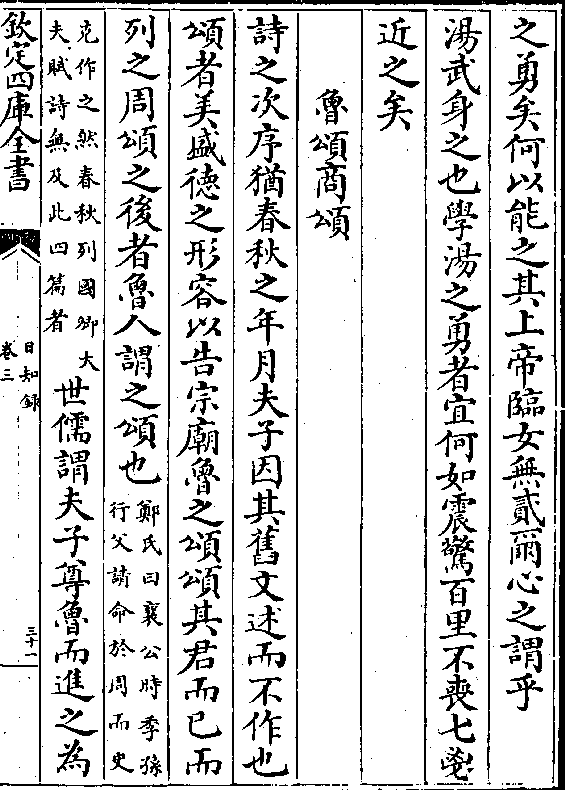 之勇矣何以能之其上帝臨女無貳爾心之謂乎
湯武身之也學湯之勇者宜何如震驚百里不喪七鬯
近之矣
魯頌商頌
詩之次序猶春秋之年月夫子因其舊文述而不作也
頌者美盛徳之形容以告宗廟魯之頌頌其君而已而
列之周頌之後者魯人謂之頌也
鄭氏曰襄公時季孫
行父請命於周而史
克作之然春秋列國卿大
夫賦詩無及此四篇者
世儒謂夫子尊魯而進之為
欽定四庫全書
日知錄
卷三
三十一